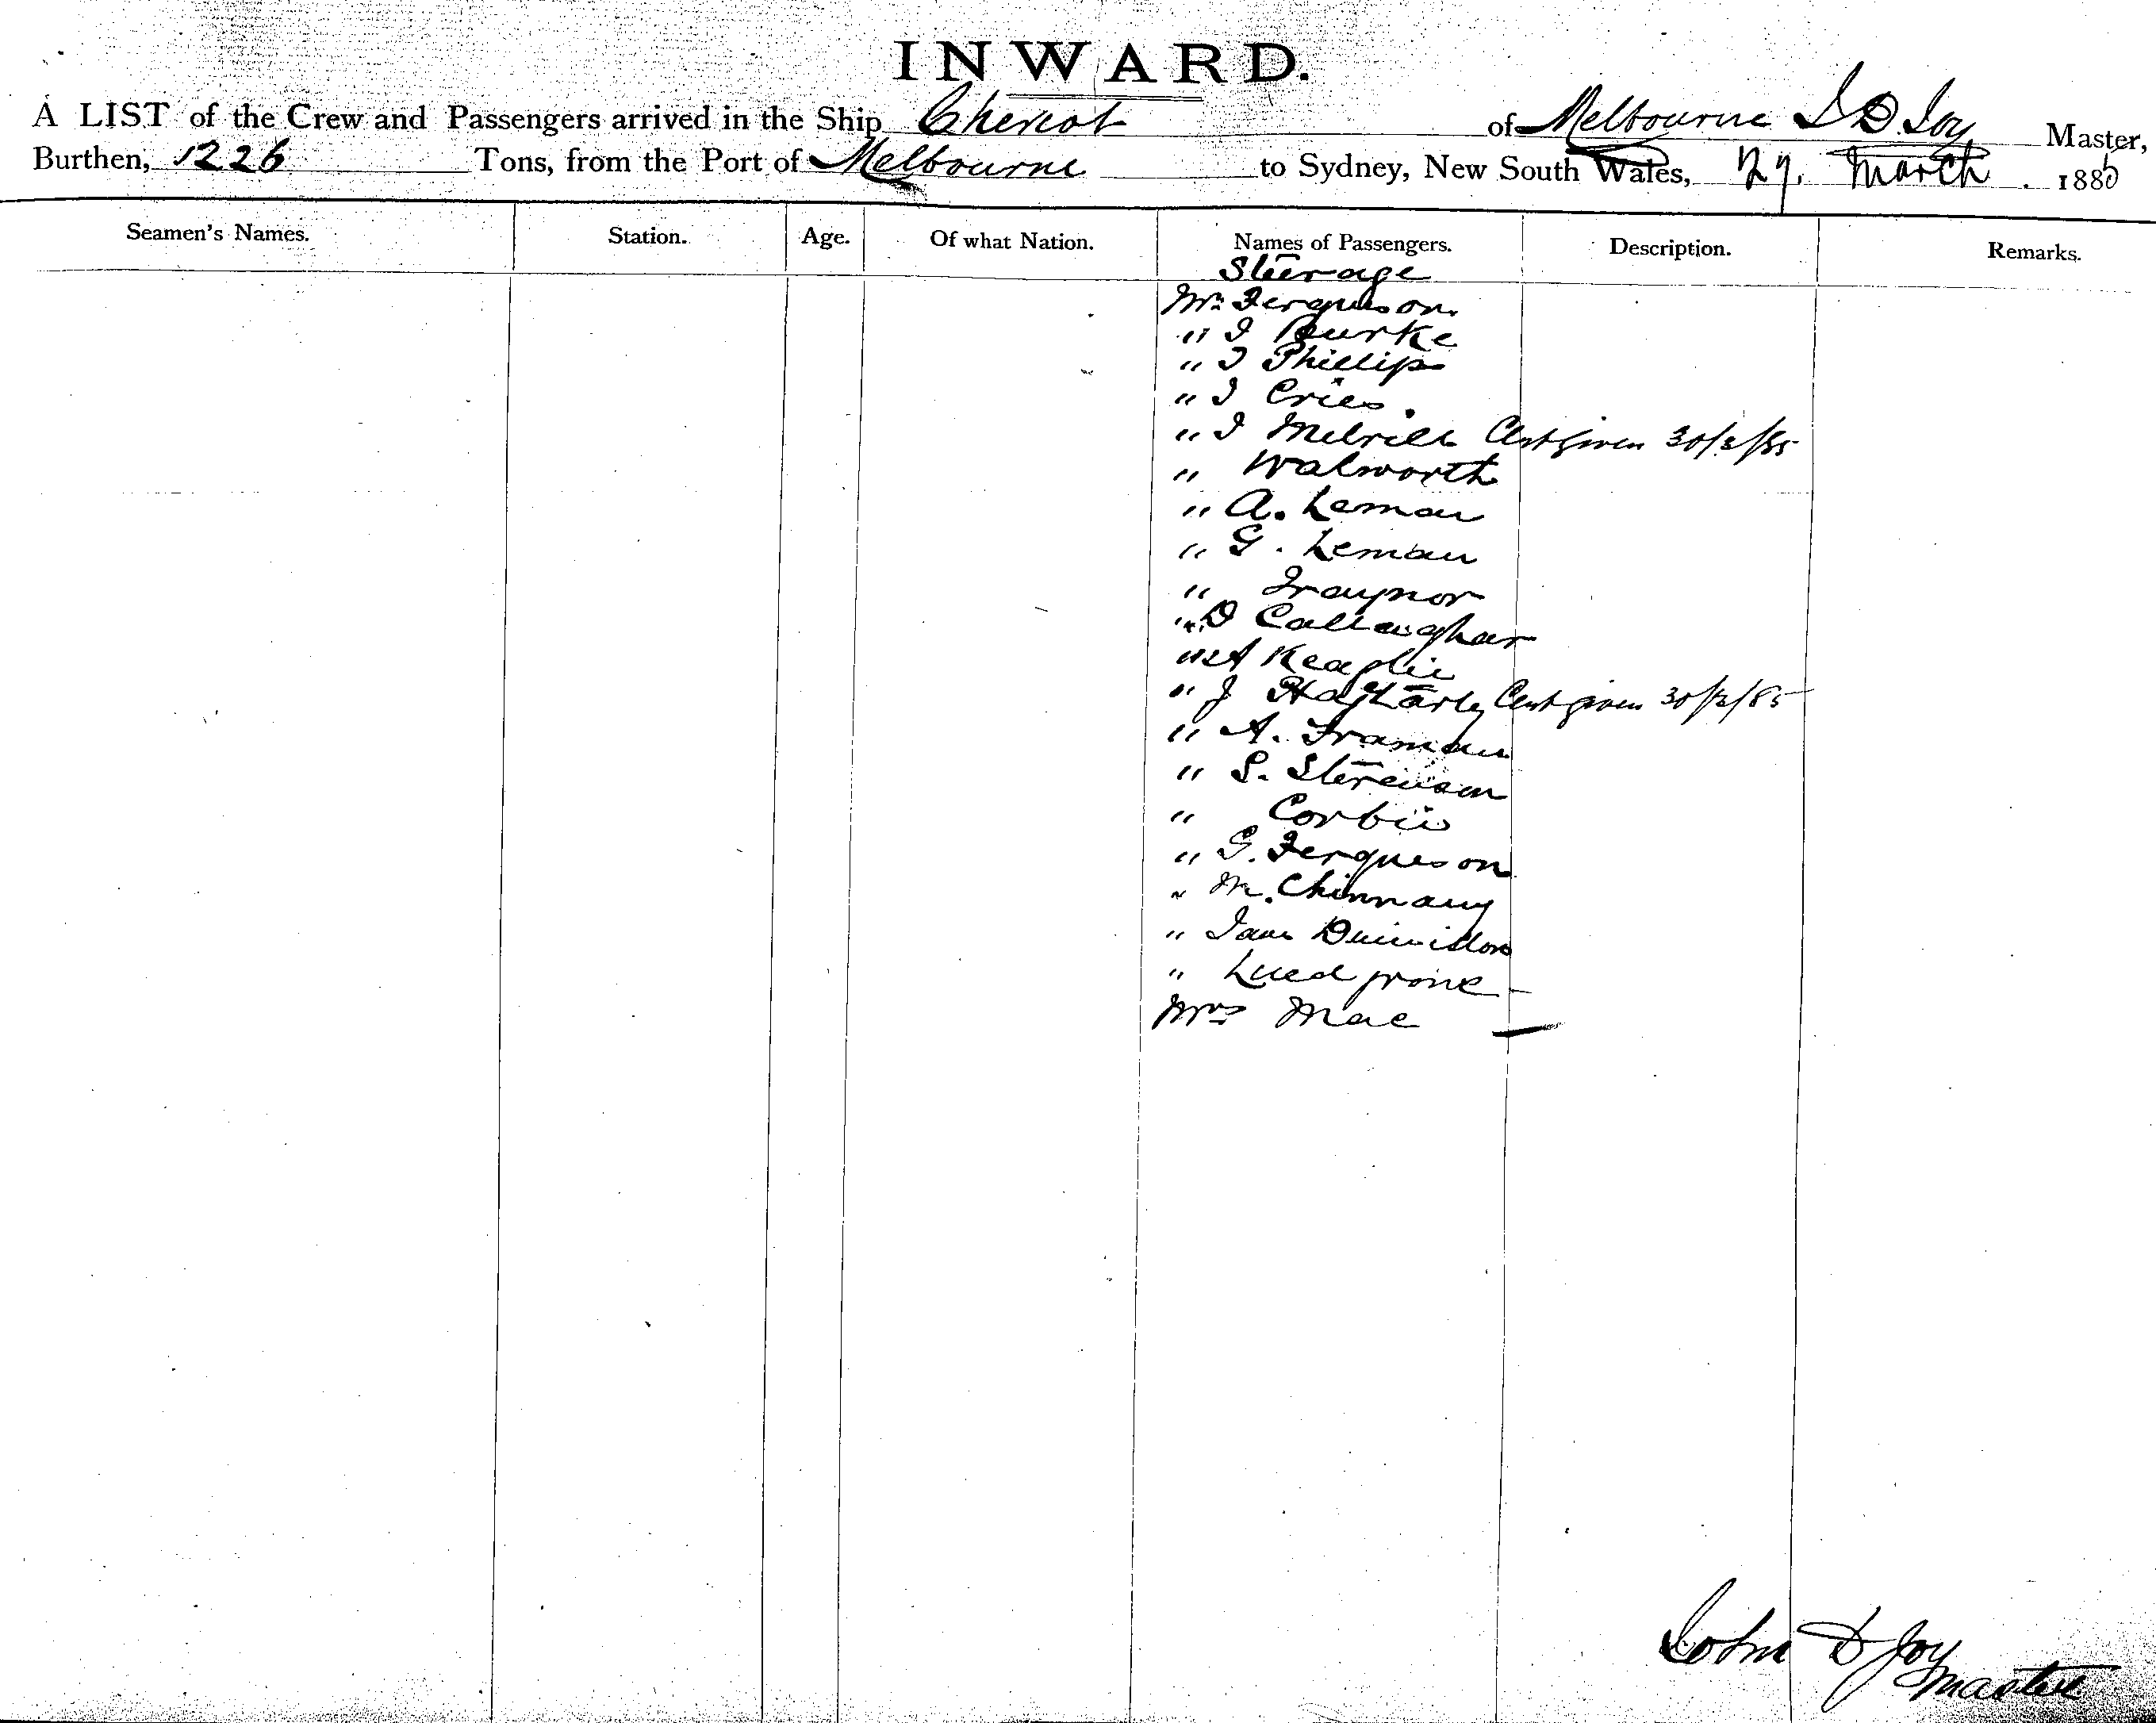 INWARD.
A LIST of the Crew and Passengers arrived in the Ship Cheviot of Melbourne J D. Joy Master,
Burthen, 1226 Tons, from the Port of Melbourne to Sydney, New South Wales, 29. March 188
Seamen's Names. Station. Age. Of what Nation. Names of Passengers. Description. Remarks.
Steerage
Mr. Fergueson.
" J Burke
" J Phillips
" J Cries.
" J given 30/3/85
" Walworth
" A. Leman
" G. Leman
" Traynor
" D Callaughan
" A
" J given 30/3/85
" A. Traman
" S. Stevenson
" Corbin
" G. Fergueson
" M. Chinnany
"
"
Mrs Mac
John D Joy
Master